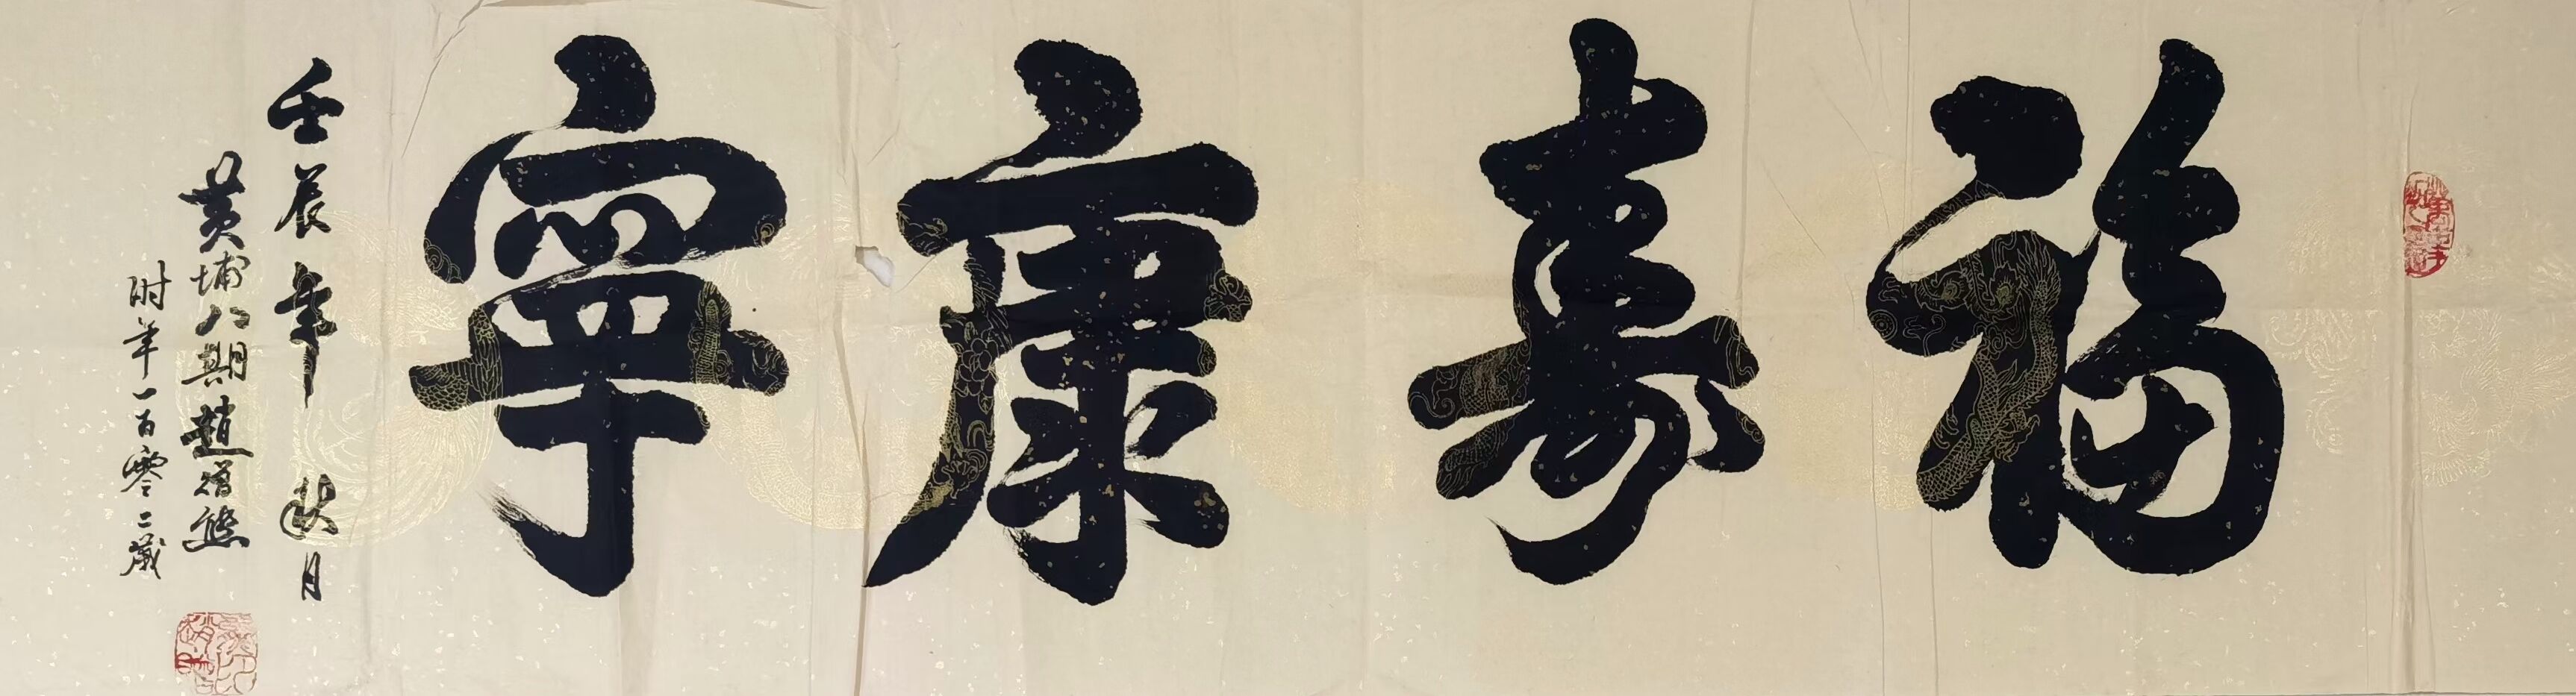 福壽康寧
壬辰年秋月
黃埔八期趙
時年一百零二歲